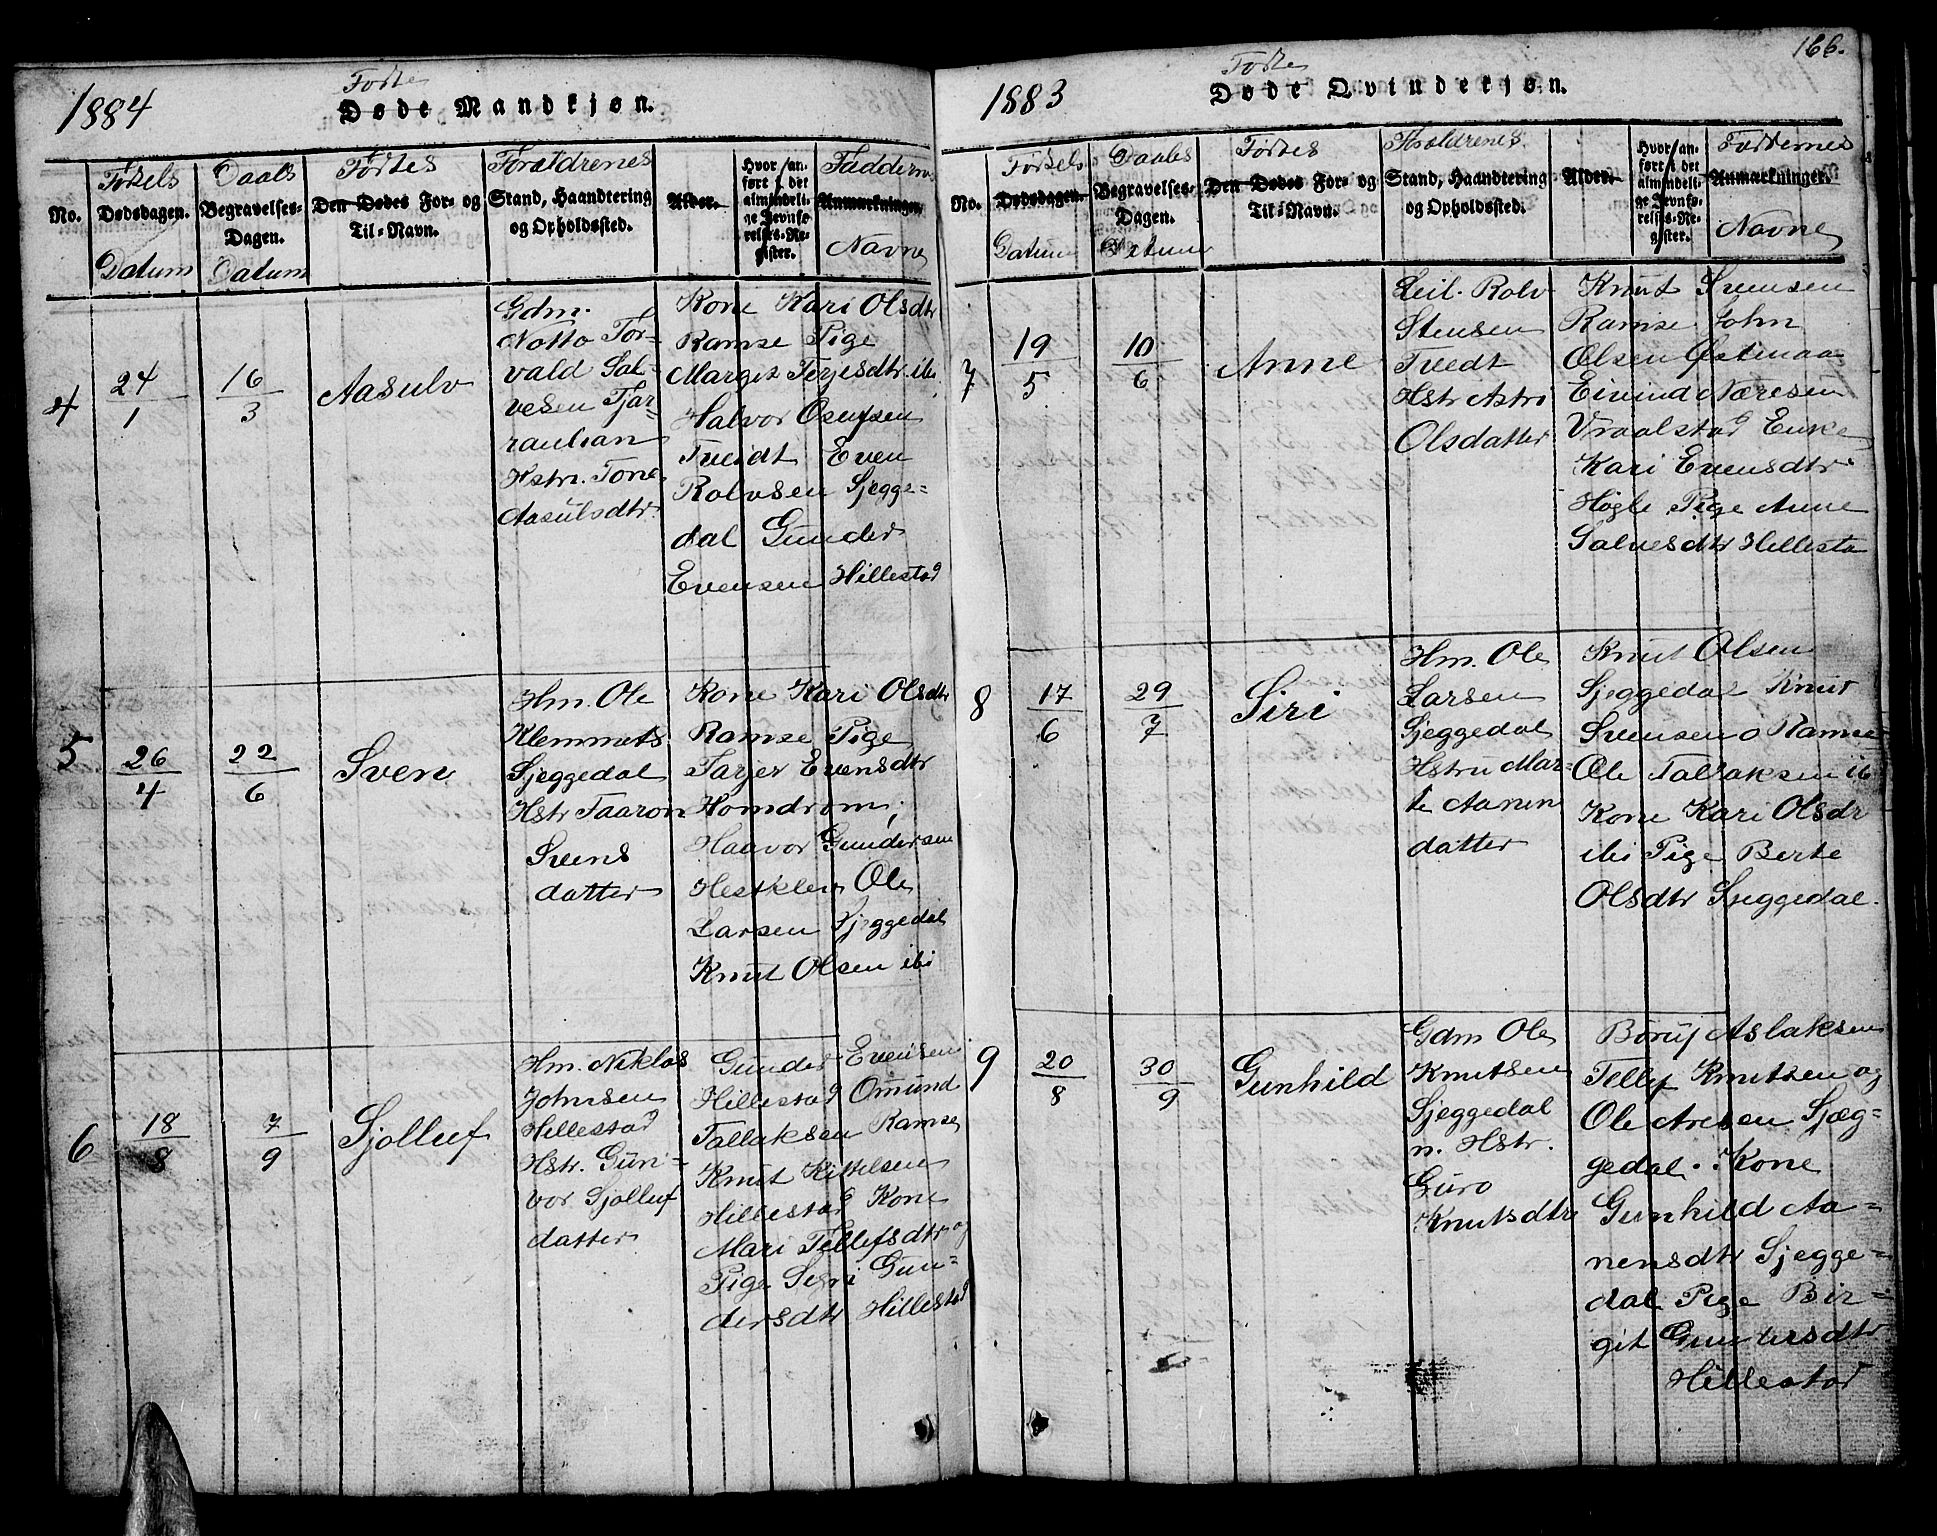 166.
1884
Fødte
Døde Mandkjøn.
No.
Fødsels
Dødsdagen.
Datum
Daabs
Begravelses-
Dagen.
Datum
Fødtes
Den Dødes For- og
Til-Navn.
Forældrenes
Stand, Haandtering
og Opholdssted.
Alder.
Hvor/an-
ført i det
almindeli-
ge Jevnfø-
relses-Re-
gister.
Faddernes
Anmærkninger.
Navne
4
24
1
16
3
Aasulv
Gdm.
Notto Tor-
vald Sal-
vesen Tjar-
raulian
Hstr. Tone
Aasulsdtr.
Kone Kari Olsdtr
Ramse Pige
Margit Terjesdtr. ibi
Halvor Osufsen
Tveidt Even
Rolvsen Sjegge-
dal Gunder
Evensen Hillestad
5
26
4
22
6
Sven
Hm. Ole
Klemmets
Sjeggedal
Hstr Taaron
Svens
datter
Kone Kari Olsdtr
Ramse Pige
Tarjer Evensdtr
Homdrom,
Haavor Gundersen
Hestklev Ole
Larsen Sjeggedal
Knut Olsen ibi
6
18
8
7
9
Sjolluf
Hm. Niklas
Johnsen
Hillestad
Hstr. Gun-
vor Sjolluf
datter.
Gunder Evensen
Hillestad Omund
Tallaksen Ramse
Knut Kittelsen
Hillestad Kone
Mari Tellefsdtr og
Pige Segri Gun-
dersdtr Hillestad
1883
Fødte
Døde Qvindekjøn.
No.
Fødsels
Dødsdagen.
Datum
Daabs
Begravelses-
Dagen.
Datum
Fødtes
Den Dødes For- og
Til-Navn.
Forældrenes
Stand, Haandtering
og Opholdssted.
Alder.
Hvor/an-
ført i det
almindeli-
ge Jevnfø-
relses-Re-
gister.
Faddernes
Anmærkninger.
Navne
7
19
5
10
6
Anne
Leil. Rolv
Stensen
Tvedt
Hstr Astri
Olsdatter
Knut Svensen
Ramse John
Olsen Østenaa
Eivind Næresen
Vraalstad Enke
Kari Evensdtr
Høgle Pige Anne
Salvesdtr Hillesta
8
17
6
29
7
Siri
Hm. Ole
Larsen
Sjeggedal
Hstru Mar-
te Aanen
datter
Knut Olsen
Sjeggedal Knut
Svensen Ramse
Ole Tallaksen ib
Kone Kari Olsdr
ibi Pige Berte
Olsdtr Sjeggedal.
9
20
8
30
9
Gunhild
Gdm Ole
Knutsen
Sjeggedal
n. Hstr.
Guro
Knutsdtr
Boruf Aslaksen
Tellef Knutsen og
Ole Aresen Sjæg-
gedal. Kone
Gunhild Aa-
nensdtr Sjegge-
dal Pige Bir-
git Gundersdtr
Hillestad